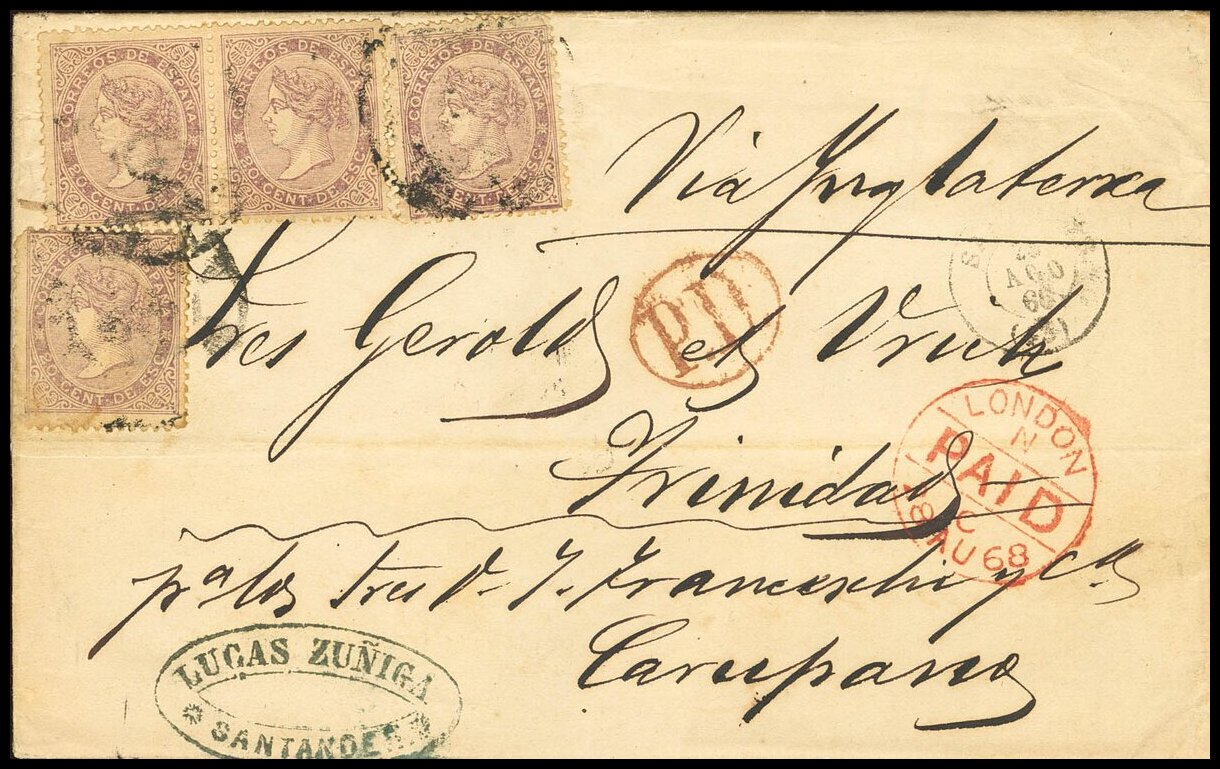 CORREOS DE ESPAÑA
20 CENT. DE ESCO
CORREOS DE ESPAÑA
20 CENT. DE ESCO
CORREOS DE ESPAÑA
CENT. DE ESCO
CORREOS DE ESPAÑA
20 CENT. DE ESCO
Via Ynglaterra
AGO
68
PD
Sres Gerold et Urich
Trinidad
LONDON
N
PAID
C
AU 68
pa los Sres V. J. Franceschi y Ca
Carupano
LUCAS ZUÑIGA
SANTANDER